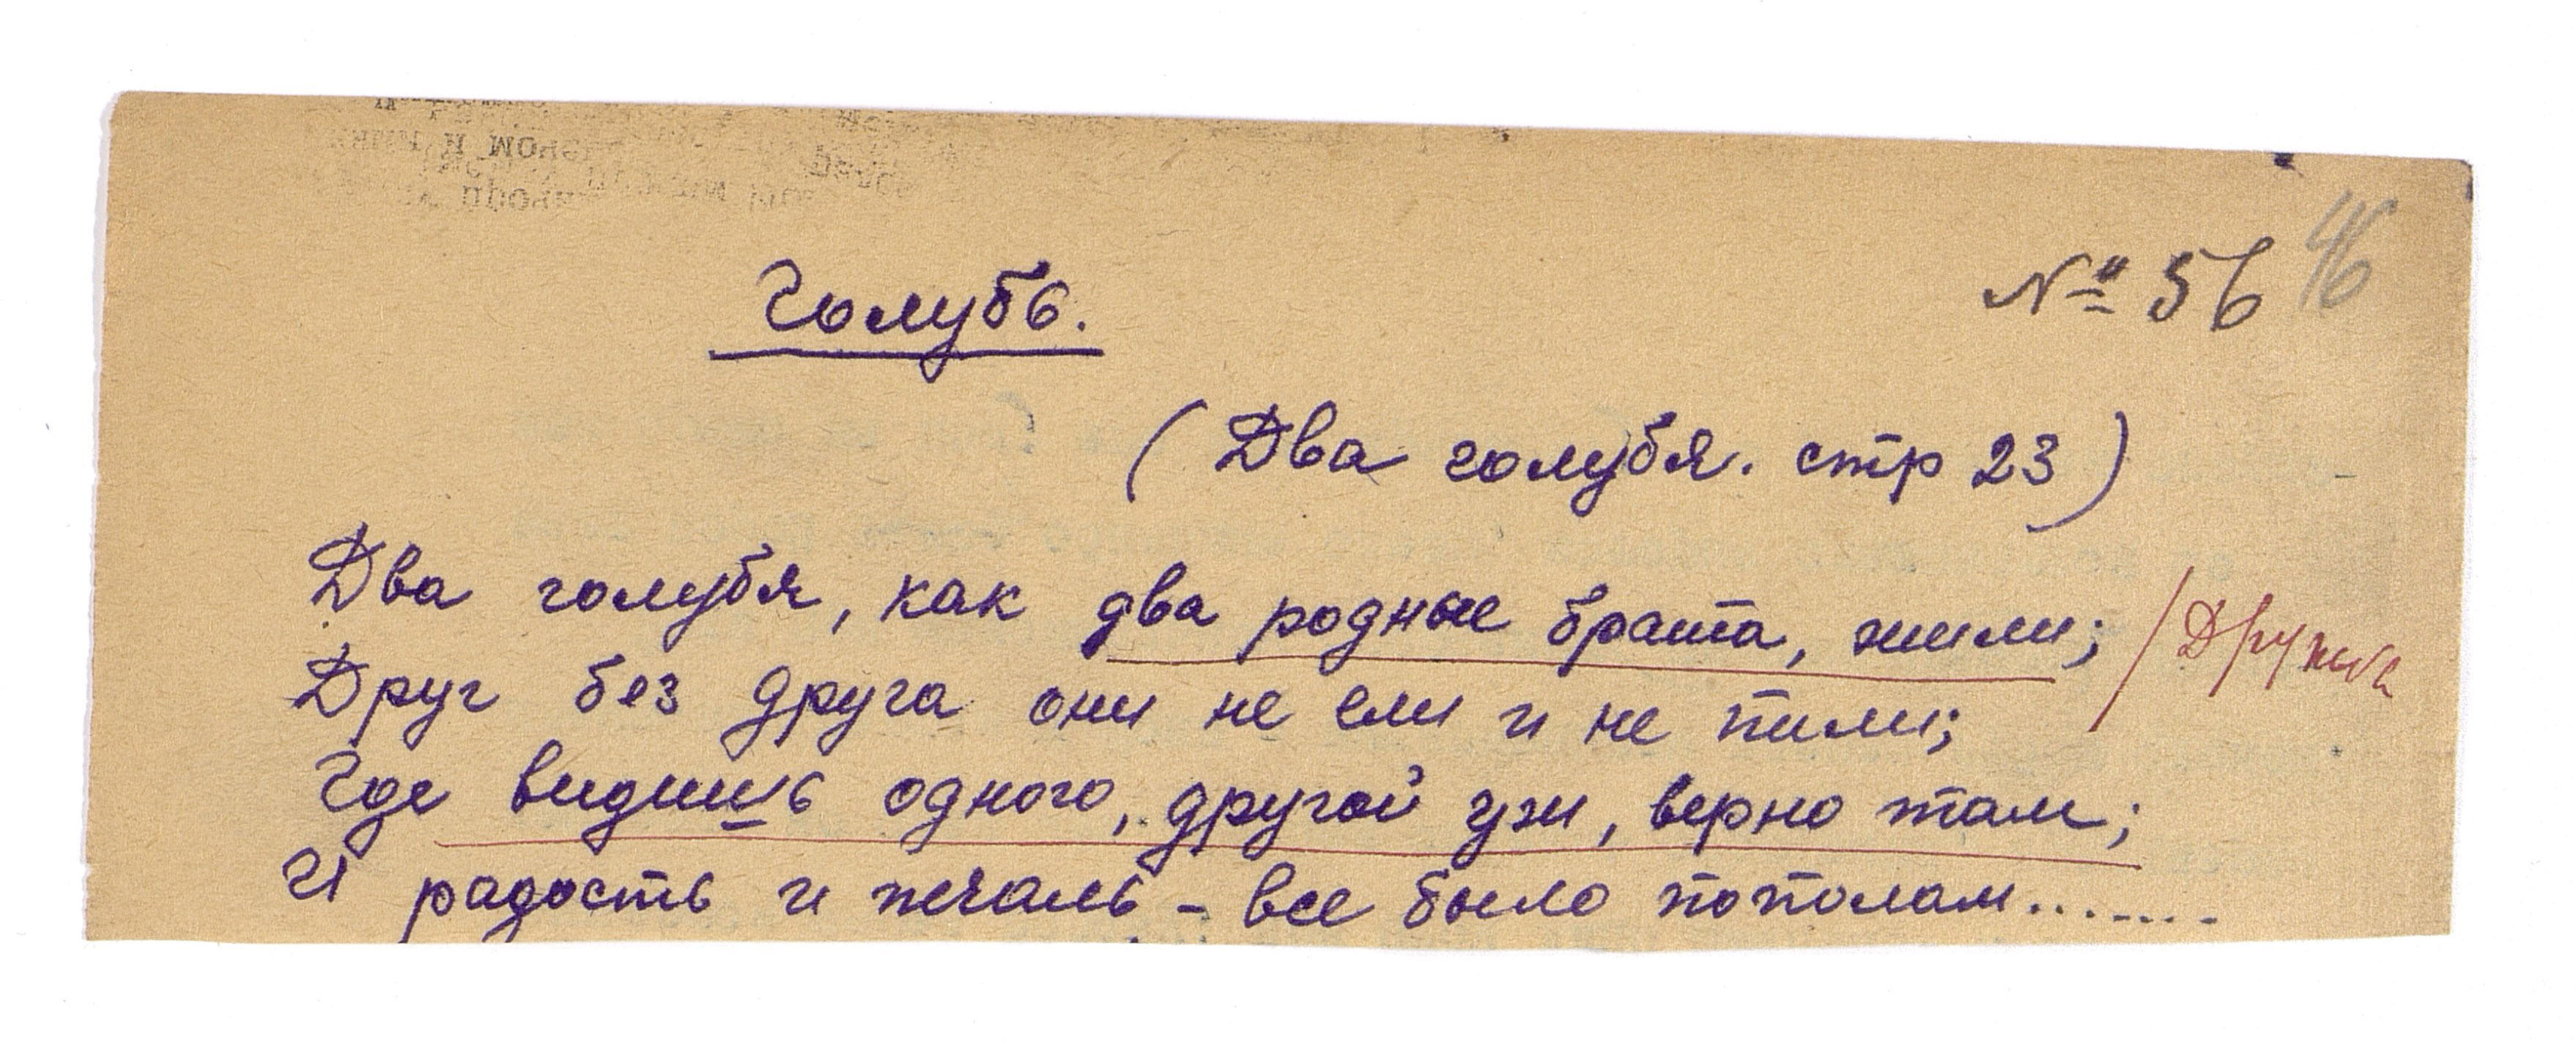 Голубь.
№ 56 46
(Два голубя. стр 23)
Два голубя, как два родные брата, жили; / Дружба
Друг без друга они не ели и не пили;
Где видишь одного, другой уж, верно там;
И радость и печаль - все было пополам.......